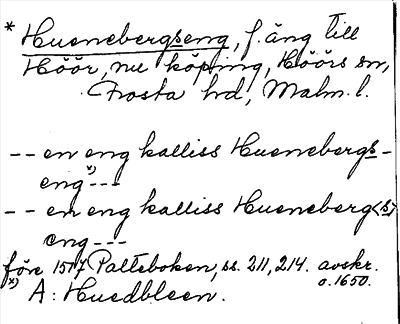 * Huenebergseng, f. äng till
Höör, nu köping, Höörs sn,
Frosta hd, Malm. l.
-- en eng kalliss Huenebergs-
eng x) ---
-- en eng kalliss Hueneberg<s>
eng ---
före 1517 Palteboken, ss. 211, 214. avskr.
o. 1650.
x) A: Huedbleen.